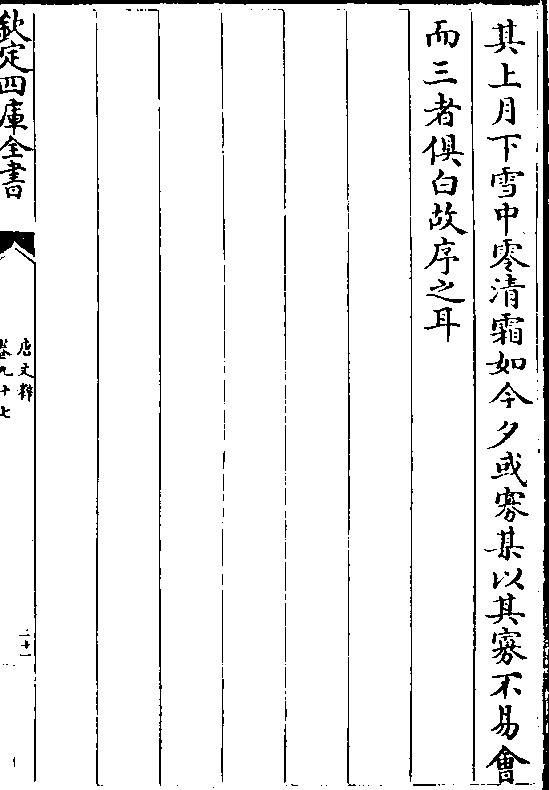 其上月下雪中零清霜如今夕或寡某以其寡不易會
而三者俱白故序之耳
欽定四庫全書
唐文粹
卷九十七
二十一